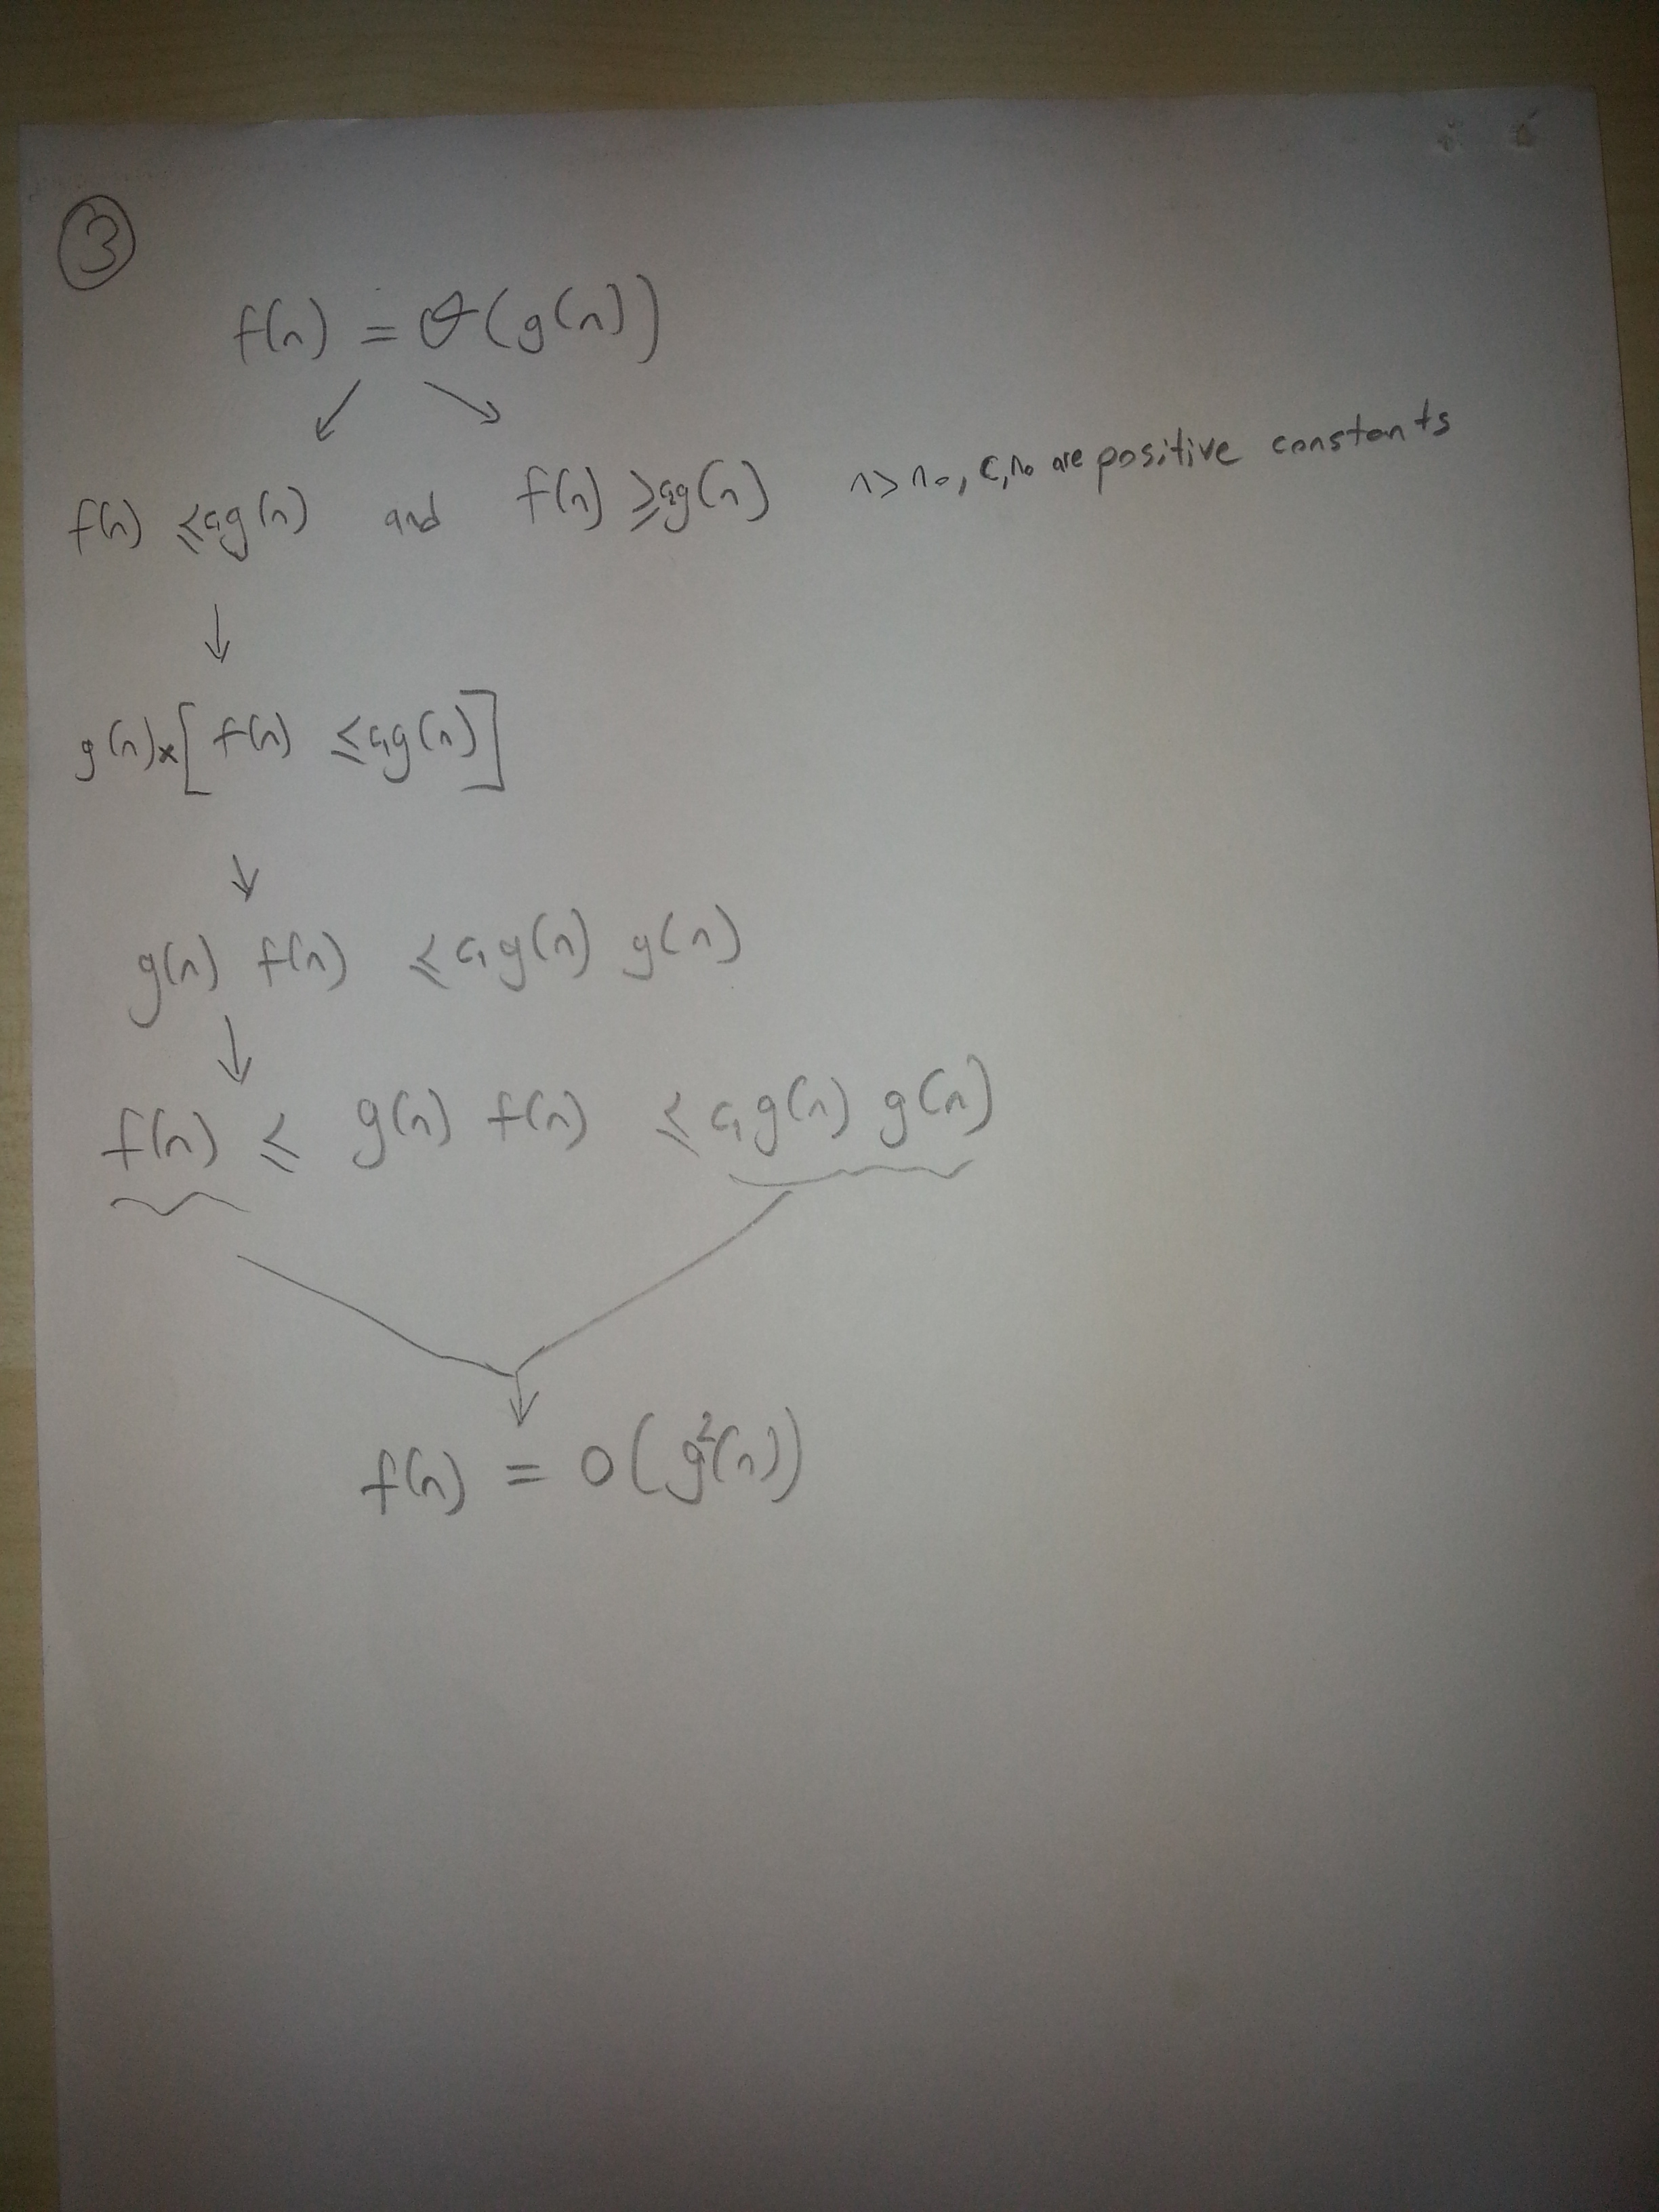 3
f(n) = θ(g(n))
f(n) ≤ c₁g(n) and f(n) ≥ c₂g(n) n > n₀, c, n₀ are positive constants
g(n) × [f(n) ≤ c₁g(n)]
g(n) f(n) ≤ c₁ g(n) g(n)
f(n) ≤ g(n) f(n) ≤ c₁ g(n) g(n)
f(n) = O(g²(n))